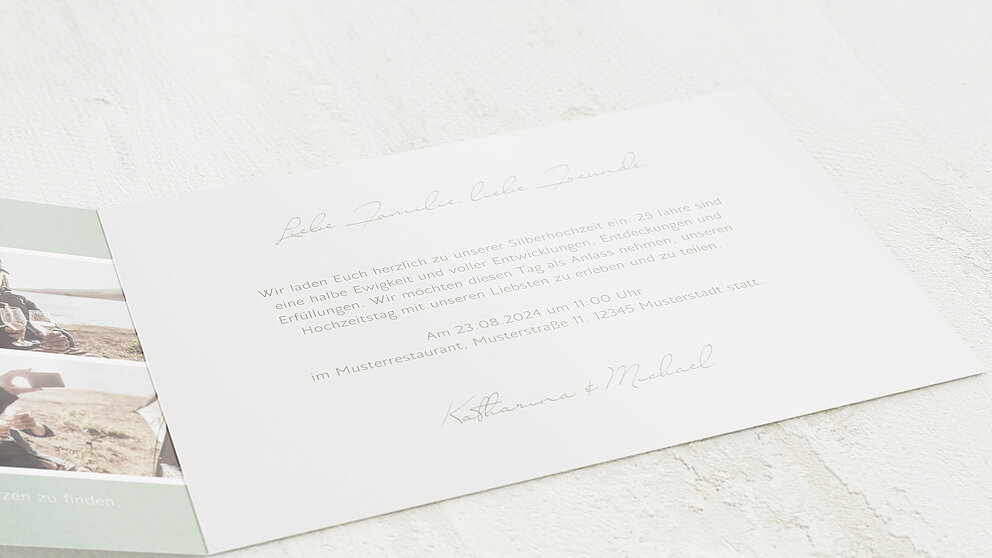 Liebe Familie, liebe Freunde,
Wir laden Euch herzlich zu unserer Silberhochzeit ein. 25 Jahre sind
eine halbe Ewigkeit und voller Entwicklungen, Entdeckungen und
Erfüllungen. Wir möchten diesen Tag als Anlass nehmen, unseren
Hochzeitstag mit unseren Liebsten zu erleben und zu teilen.
Am 23.08.2024 um 11:00 Uhr
im Musterrestaurant, Musterstraße 11, 12345 Musterstadt statt.
Katharina & Michael
zu finden